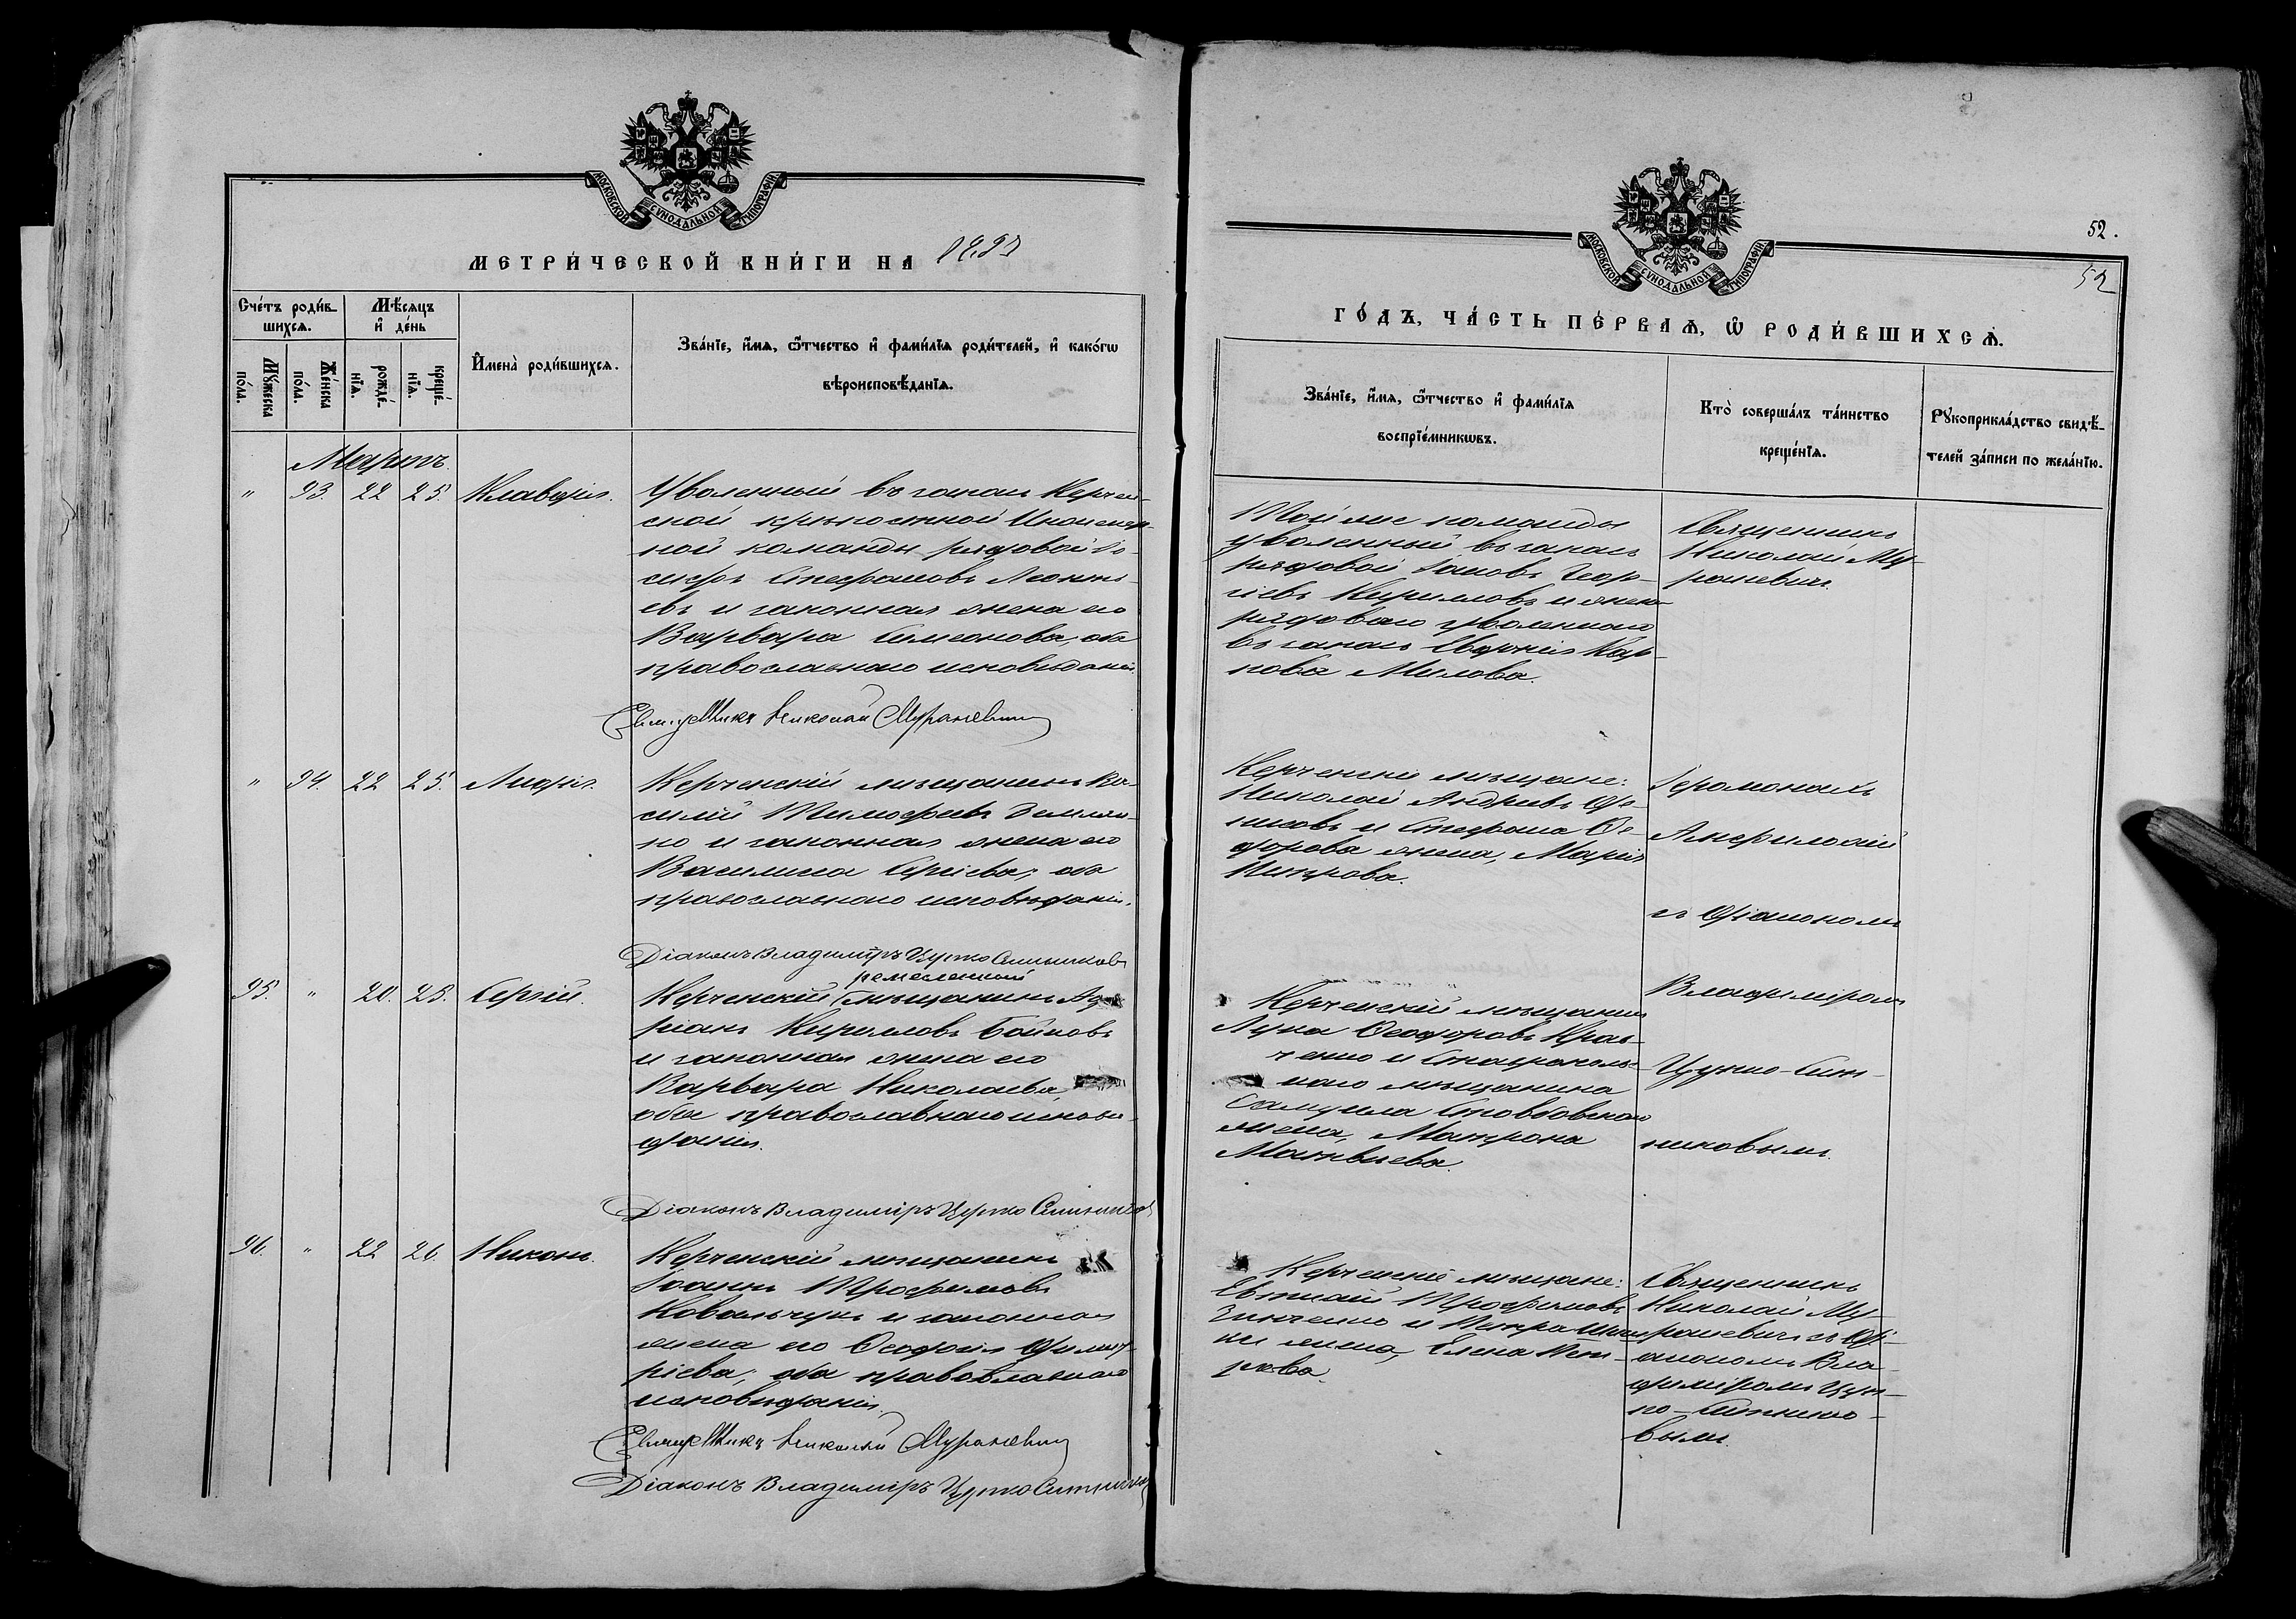 МОСКОВСКОЙ СУНОДАЛЬНОЙ ТИПОГРАФІИ
МЕТРИ́ЧЕСКОЙ КНИ́ГИ НА
Сче́тъ роди́в-
шихся.
Мѣ́сяцъ
и҆ де́нь
Мꙋ́жеска
по́ла.
Же́нска
по́ла.
рожде́-
нїѧ.
креще́-
нїѧ.
И҆мена̀ роди́вшихсѧ.
Зва́нїе, и҆́мѧ, ѻ҆́тчество и҆ фами́лїѧ роди́телей, и҆ како́гѡ
вѣроисповѣ́данїѧ.
Мартъ.
" 93. 22 25. Клавдія.
Уволенный въ запасъ Керчен-
ской крѣпостной Инженер-
ной команды рядовой Іо-
сифъ Стефановъ Леонть-
евъ и законная жена его
Варвара Симеонова, оба
православнаго исповѣданія.
Священникъ Николай Мураневич
" 94. 22 25. Лидія.
Керченскій мѣщанинъ Ва-
силій Тимофеевъ
и законная жена его
Василиса Сергіева, оба
православнаго исповѣданія.
Діаконъ Владиміръ Цупко Ситников
95. " 20. 25. Сергій.
ремесленный
Керченскій мѣщанинъ Ад-
ріанъ Кирилловъ Бойковъ
и законная жена его
Варвара Николаева,
оба православнаго исповѣ-
данія.
Діаконъ Владиміръ Цупко Ситников
96. " 22 26. Никонъ.
Керченскій мѣщанинъ
Іоаннъ Трофимовъ
Ковальчукъ и законная
жена его Ѳеодосія Димит-
ріева; оба православнаго
исповѣданія.
Священникъ Николай Мураневич
Діаконъ Владиміръ Цупко Ситников
МОСКОВСКОЙ СУНОДАЛЬНОЙ ТИПОГРАФІИ
52.
52
ГО́ДЪ, ЧА́СТЬ ПЕ́РВАѦ, Ѡ҆ РОДИ́ВШИХСѦ.
Зва́нїе, и҆́мѧ, ѻ҆́тчество и҆ фами́лїѧ
воспрїе́мникѡвъ.
Кто̀ соверша́лъ та́инство
креще́нїѧ.
Рꙋкоприкла́дство свидѣ́-
телей за́писи по жела́нїю.
Той же команды
уволенный въ запасъ
рядовой Іаковъ Геор-
гіевъ Кирилловъ и жена
рядоваго уволеннаго
въ запасъ Евдокія Кар-
пова Милова.
Священникъ
Николай Му-
раневичъ
Керченскіе мѣщане:
Николай Андреевъ
и Стефана Ѳе-
дорова жена, Марія
Петрова.
Іеромонахъ
Амфилохій
съ Діакономъ
Владиміромъ
Цупко-Сит-
никовымъ.
Керченскій мѣщанинъ
Лука Ѳеодоровъ Крав-
ченко и Ставрополь-
скаго мѣщанина
Самуила
жена, Матрона
Матвѣева.
Керченскіе мѣщане:
Евтихій Трофимовъ
Зинченко и Петра
жена, Елена Пет-
рова.
Священникъ
Николай Му-
раневичъ съ Ді-
акономъ Вла-
диміромъ Цуп-
ко-Ситнико-
вымъ.